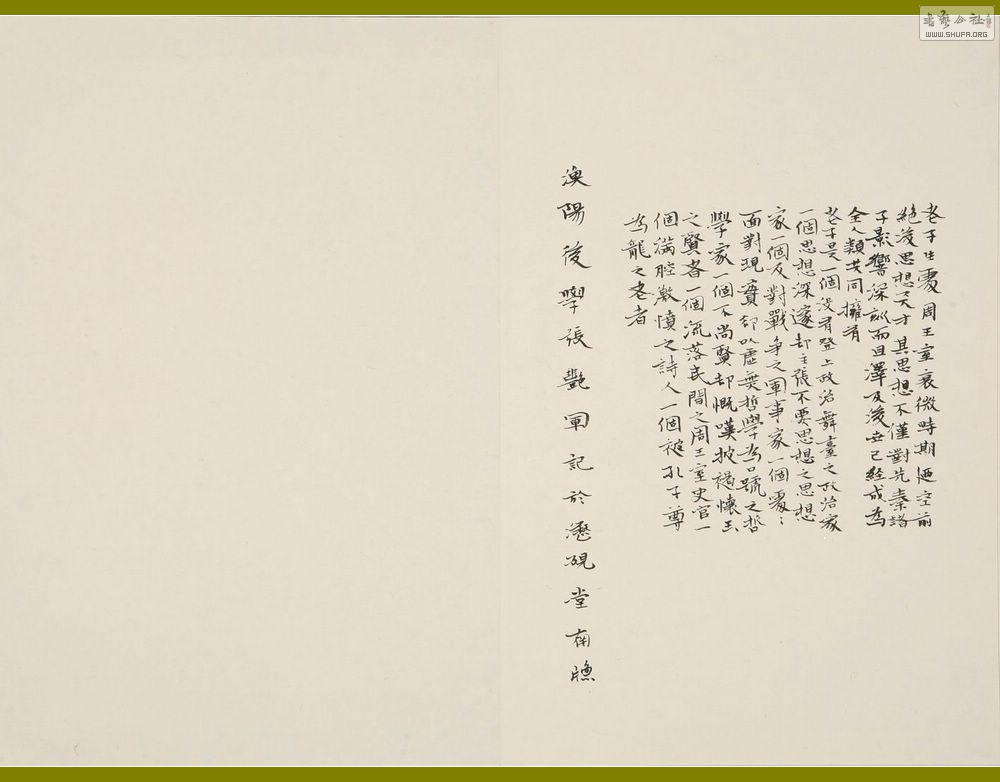 老子生處周王室衰微時期 Kind空前
絕後思想天才其思想不僅對先秦諸
子影響深刻而且澤及後世已經成為
全人類共同擁有
老子是一個没有登上政治舞臺之政治家
一個思想深邃却主張不要思想之思想
家一個反對戰争之軍事家一個處處
面對現實却以虛無哲學為口號之哲
學家一個不尚賢却慨嘆披褐懷玉
之賢者一個流落民間之周王室史官一
個滿腔激憤之詩人一個被孔子尊
為龍之老者
漁陽後學張艷軍記於 硯堂南牕
書藝公社
WWW.SHUFA.ORG